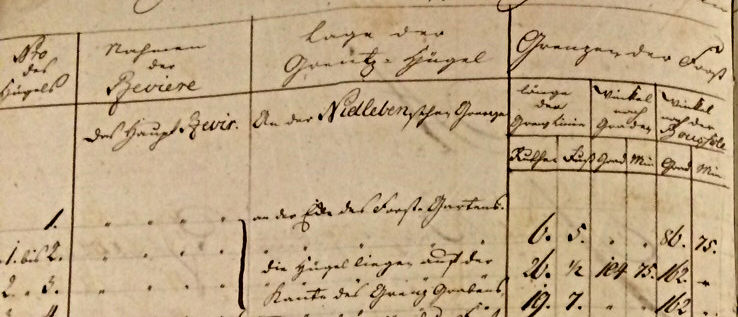 Nro des Hügels
Nahmen der Reviere
Lage der Grentz-Hügel
Grenzen der Forst
länge der Grenz Linie
Winkel nach Graden
Winkel nach der Boussole
Ruthen Fuß Grad Min Grad Min
das Haupt Revir. An der Nidlebenschen Grenze
1. " " " " an der Ecke des Forst-Gartens.
1. bis 2. " " " " 6. 5. " " 86. 75.
2. " 3. " " " " die Hügel liegen auf der 26. ½ 104 75. 162. "
Kante des Grenz Grabens 19. 7. " " 162 "